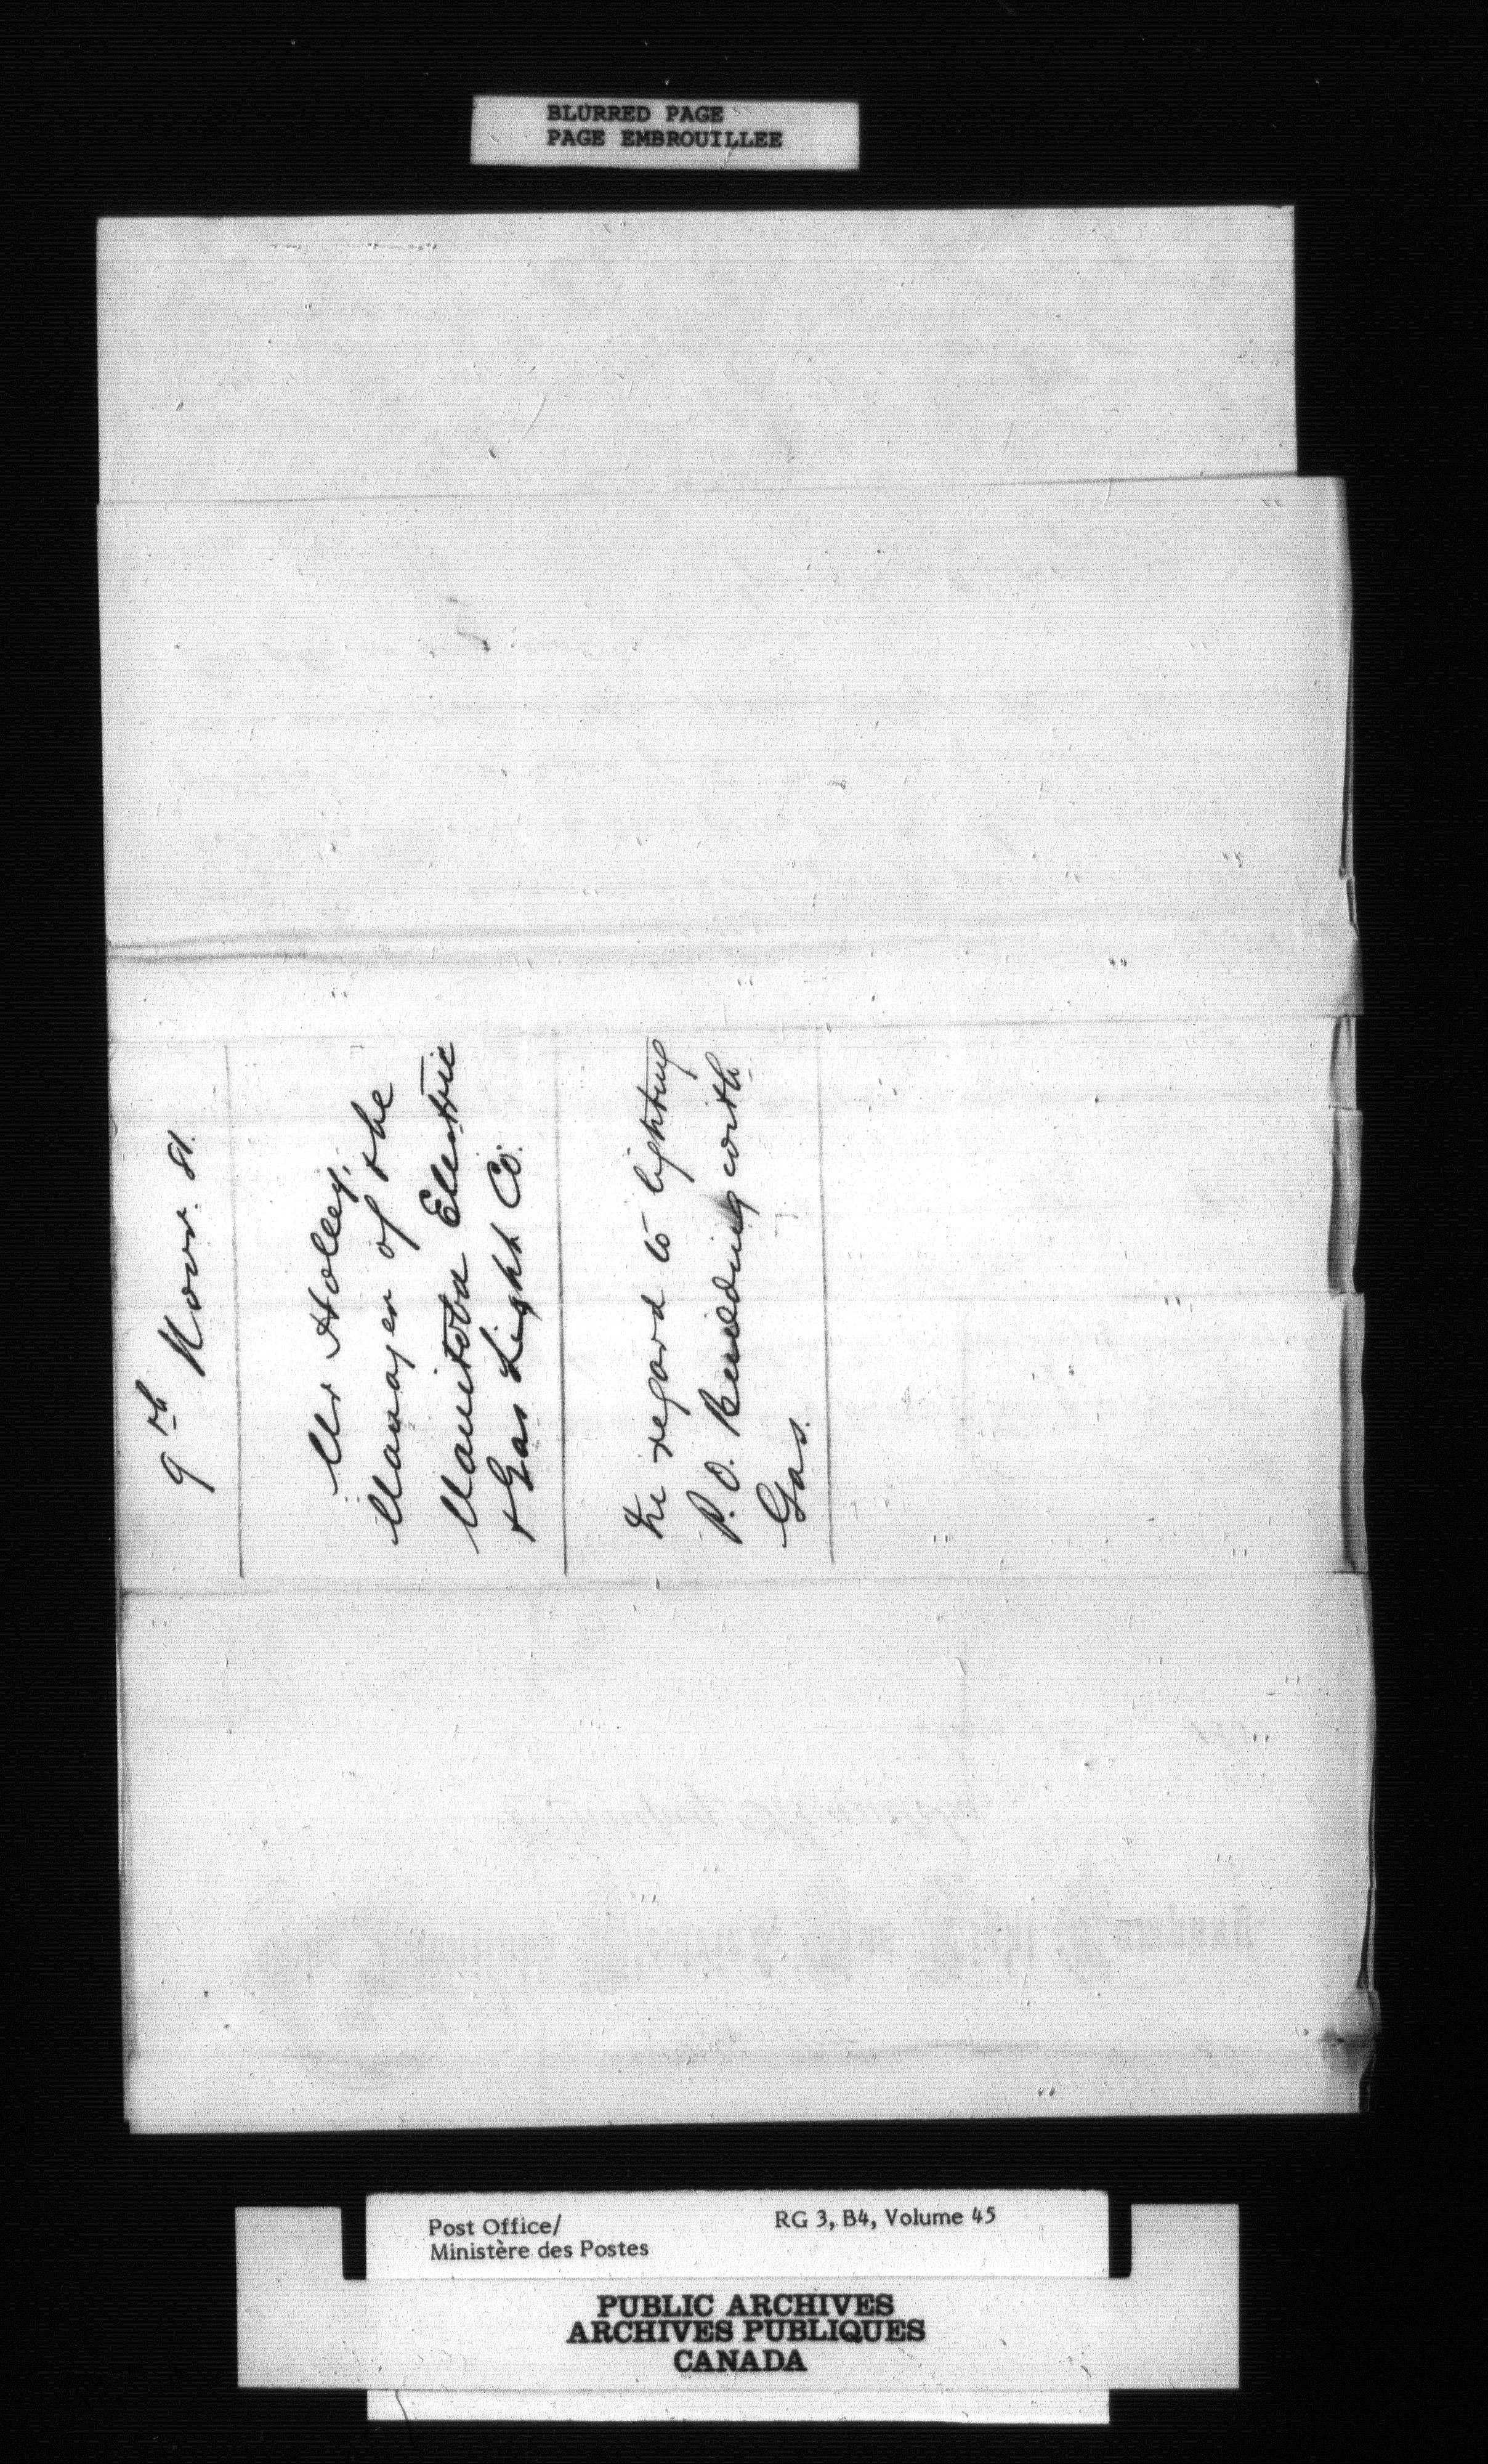 BLURRED PAGE
PAGE EMBROUILLEE
9th Novr. 81.
Mr Holley,
Manager of the
Manitoba Electric
& Gas Light Co.
In regard to lighting
P.O. Building with
Gas.
Post Office/
Ministère des Postes
RG 3, B4, Volume 45
PUBLIC ARCHIVES
ARCHIVES PUBLIQUES
CANADA